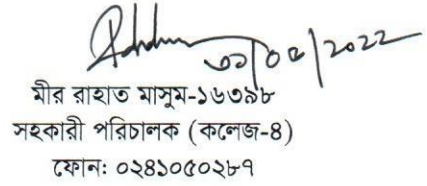 ৩১/০৫/2022
মীর রাহাত মাসুম-১৬৩৯৮
সহকারী পরিচালক (কলেজ-৪)
ফোন: ০২৪১০৫০২৮৭